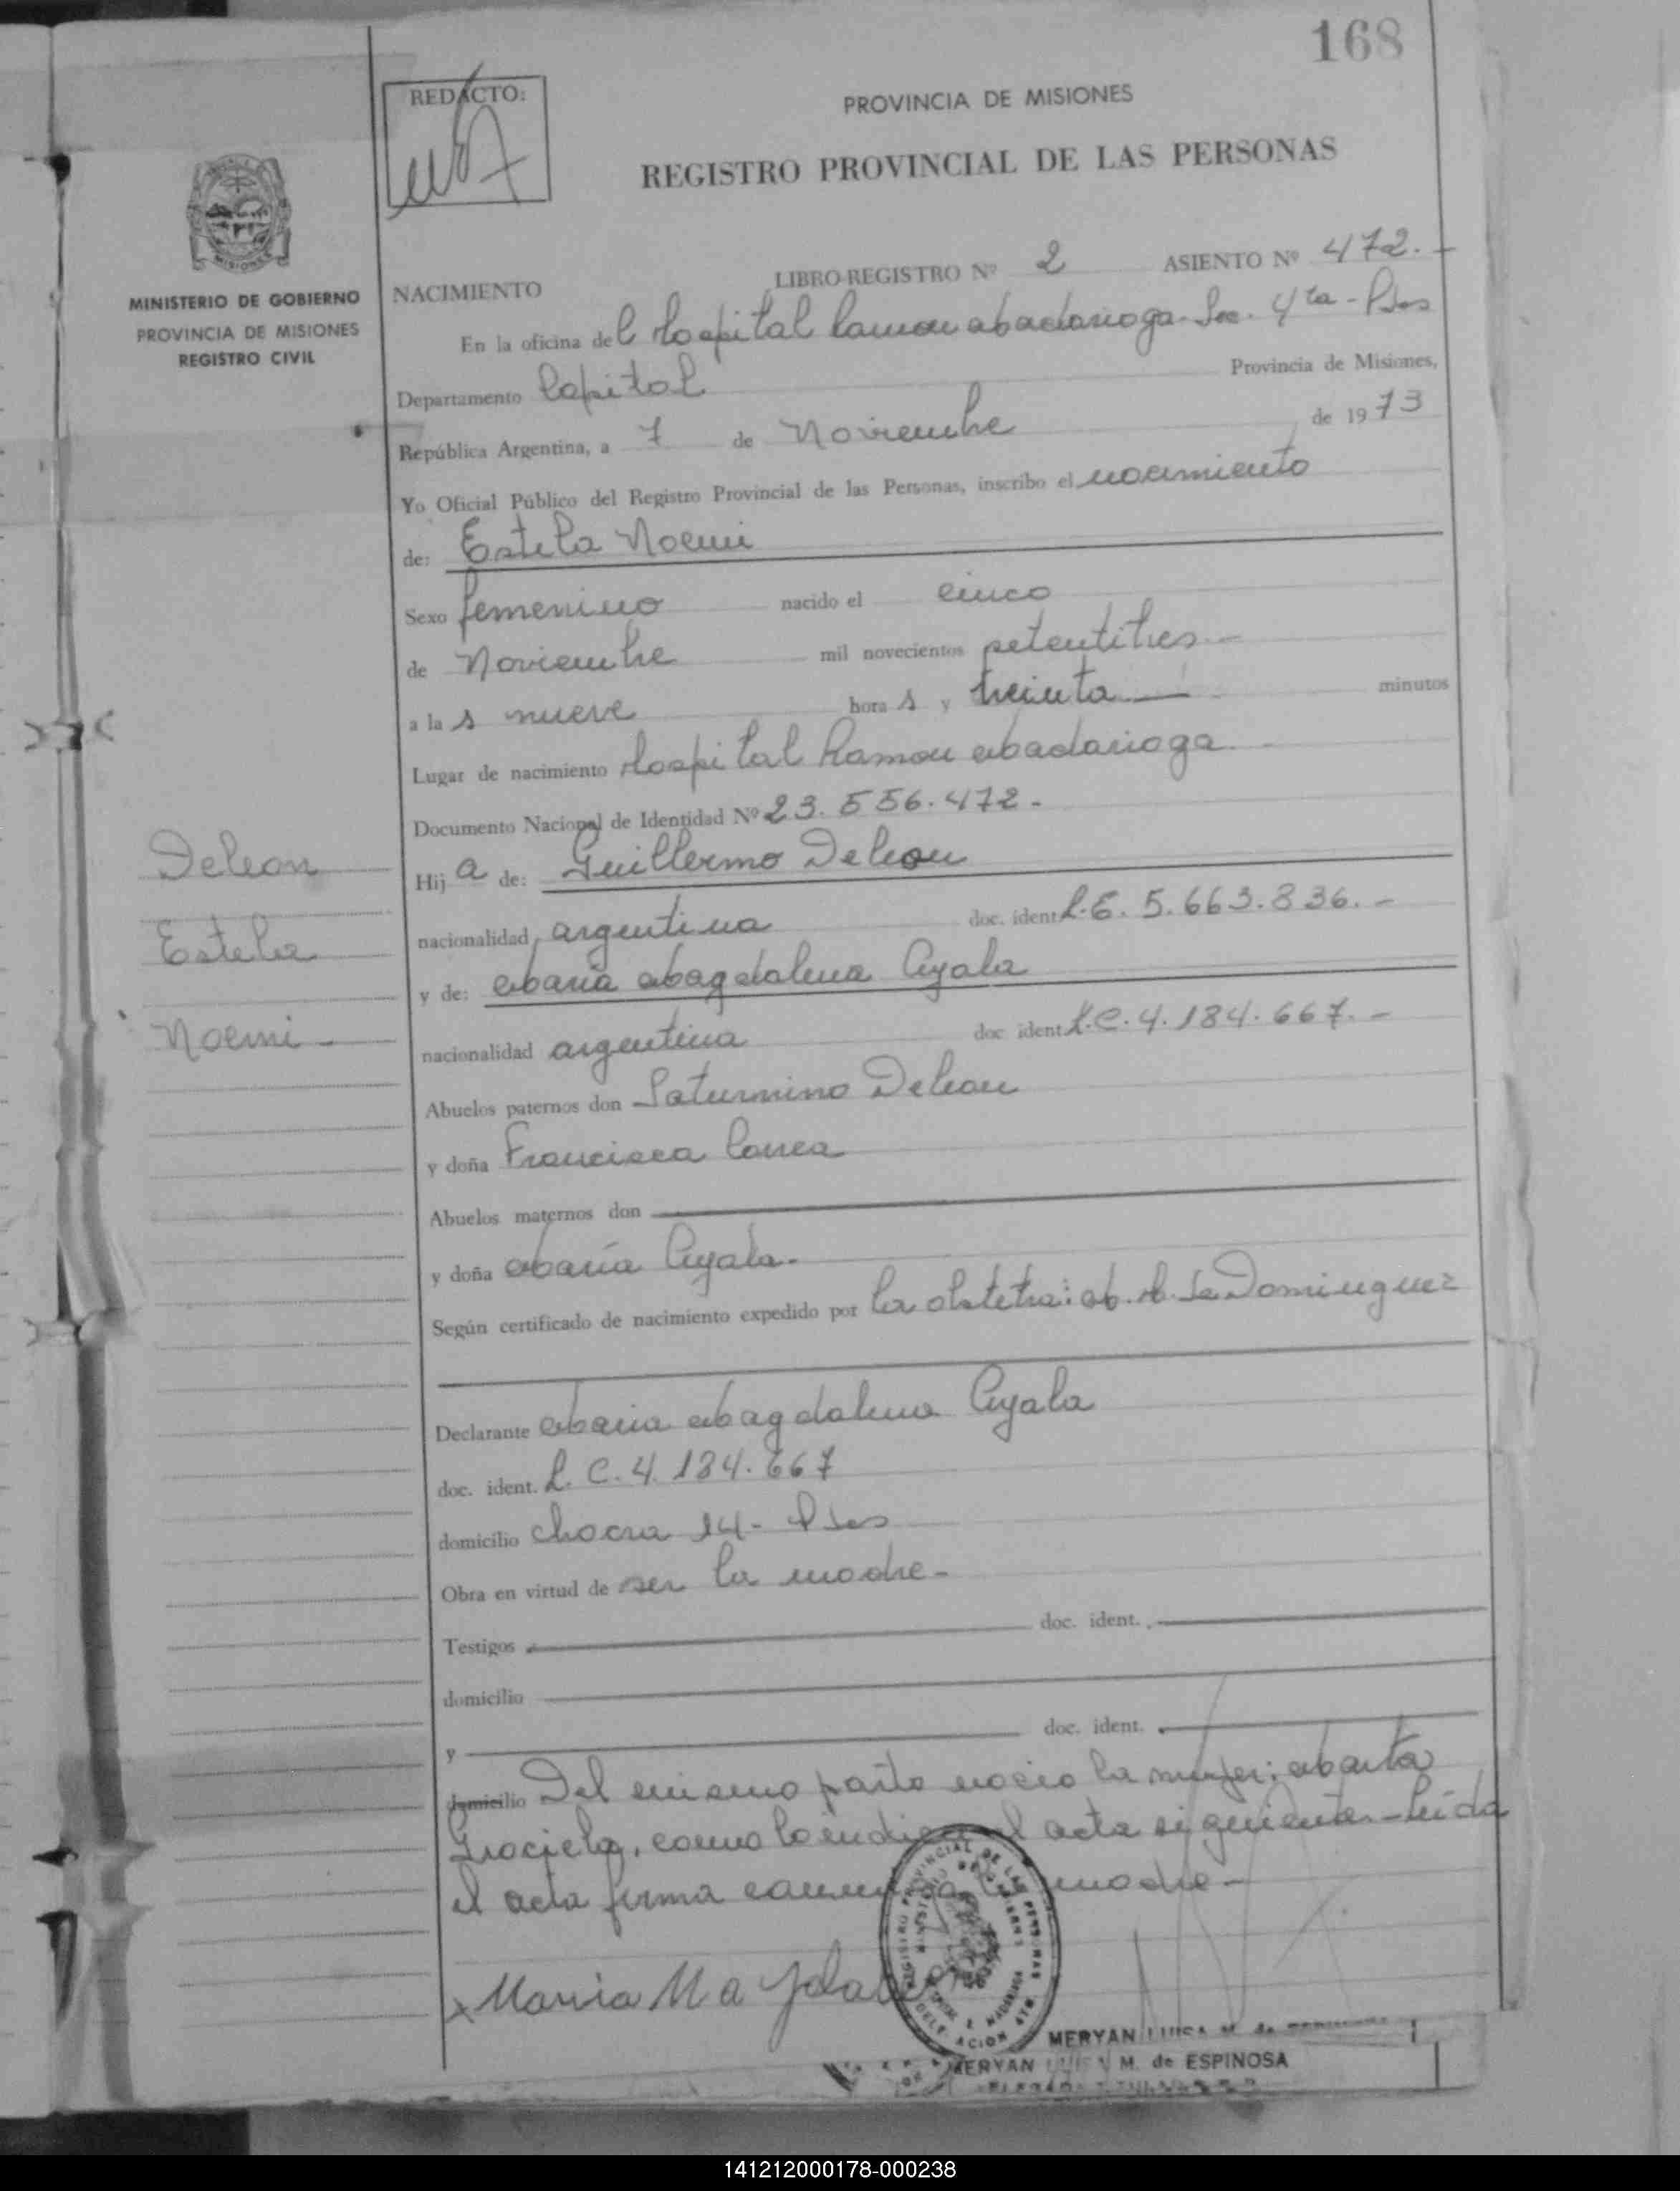 168
REDACTO:
PROVINCIA DE MISIONES
REGISTRO PROVINCIAL DE LAS PERSONAS
MINISTERIO DE GOBIERNO
PROVINCIA DE MISIONES
REGISTRO CIVIL
NACIMIENTO
LIBRO-REGISTRO Nº 2 ASIENTO Nº 472.-
En la oficina del Hospital Ramon Madariaga - Sec. 4ta - Pdas
Departamento Capital Provincia de Misiones,
República Argentina, a 7 de Noviembre de 1973
Yo Oficial Público del Registro Provincial de las Personas, inscribo el nacimiento
de: Estela Noemi
Sexo femenino nacido el cinco
de Noviembre mil novecientos setentitres -
a las nueve horas y treinta minutos
Lugar de nacimiento Hospital Ramon Madariaga -
Documento Nacional de Identidad Nº 23.556.472.-
Hija de: Guillermo Deleon
nacionalidad argentina doc. ident L.E. 5.663.836.-
y de: Maria Magdalena Ayala
nacionalidad argentina doc ident L.C. 4.184.667.-
Abuelos paternos don Saturnino Deleon
y doña Francisca Correa
Abuelos maternos don
y doña María Ayala.-
Según certificado de nacimiento expedido por la obstetra: M. M. de Dominguez
Declarante Maria Magdalena Ayala
doc. ident. L.C. 4.184.667
domicilio chacra 14 - Pdas
Obra en virtud de ser la madre -
Testigos doc. ident.
domicilio
y doc. ident.
domicilio Del mismo parto nacio la mujer: Marta
Graciela, como lo indica el acta siguiente - leida
el acta firma la madre -
x Maria Ma
Deleon
Estela
Noemi -
REGISTRO PROVINCIAL DE LAS PERSONAS
DELEGACION 4TA
MERYAN LUISA M. de
MERYAN LUISA M. de ESPINOSA
141212000178-000238